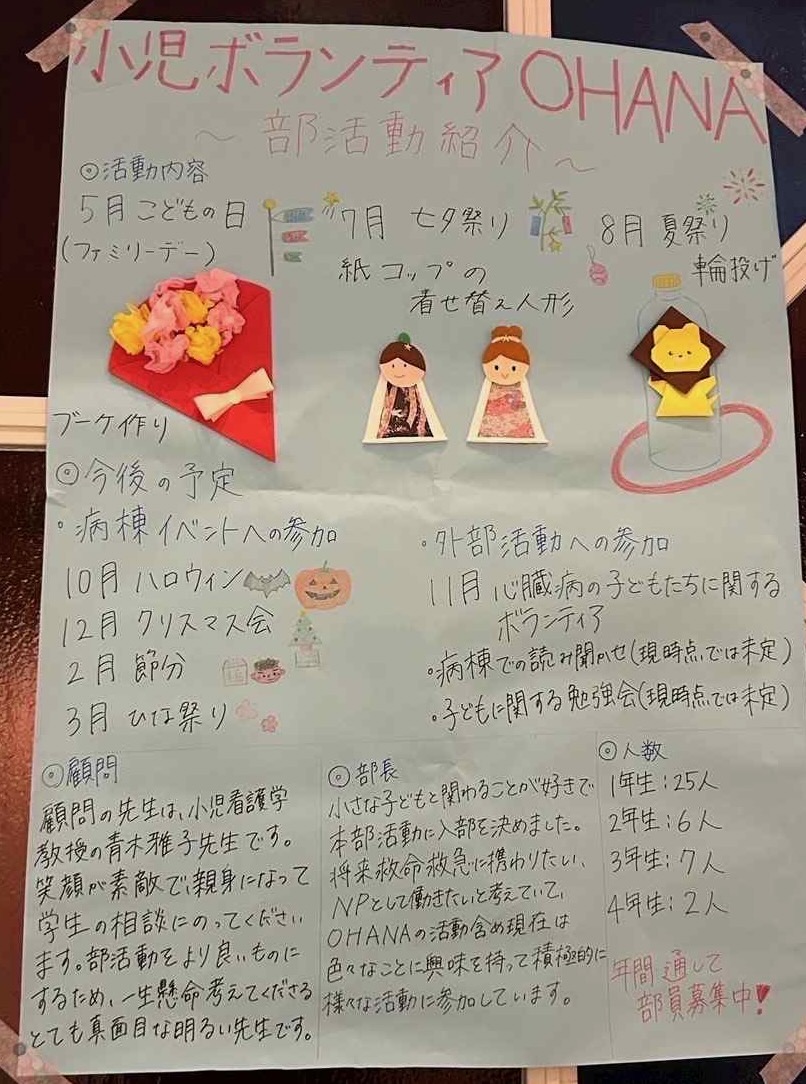 小児ボランティア OHANA
～部活動紹介～
◎活動内容
5月 こどもの日
(ファミリーデー)
ブーケ作り
7月 七夕祭り
紙コップの
着せ替え人形
8月 夏祭り
輪投げ
◎今後の予定
・病棟イベントへの参加
10月 ハロウィン
12月 クリスマス会
2月 節分
3月 ひな祭り
・外部活動への参加
11月 心臓病の子どもたちに関する
ボランティア
・病棟での読み聞かせ(現時点では未定)
・子どもに関する勉強会(現時点では未定)
◎顧問
顧問の先生は、小児看護学
教授の青木雅子先生です。
笑顔が素敵で、親身になって
学生の相談にのってください
ます。部活動をより良いものに
するため、一生懸命考えてくださる
とても真面目な明るい先生です。
◎部長
小さな子どもと関わることが好きで
本部活動に入部を決めました。
将来救命救急に携わりたい、
NPとして働きたいと考えていて、
OHANAの活動含め現在は
色々なことに興味を持って積極的に
様々な活動に参加しています。
◎人数
1年生:25人
2年生:6人
3年生:7人
4年生:2人
年間通して
部員募集中!